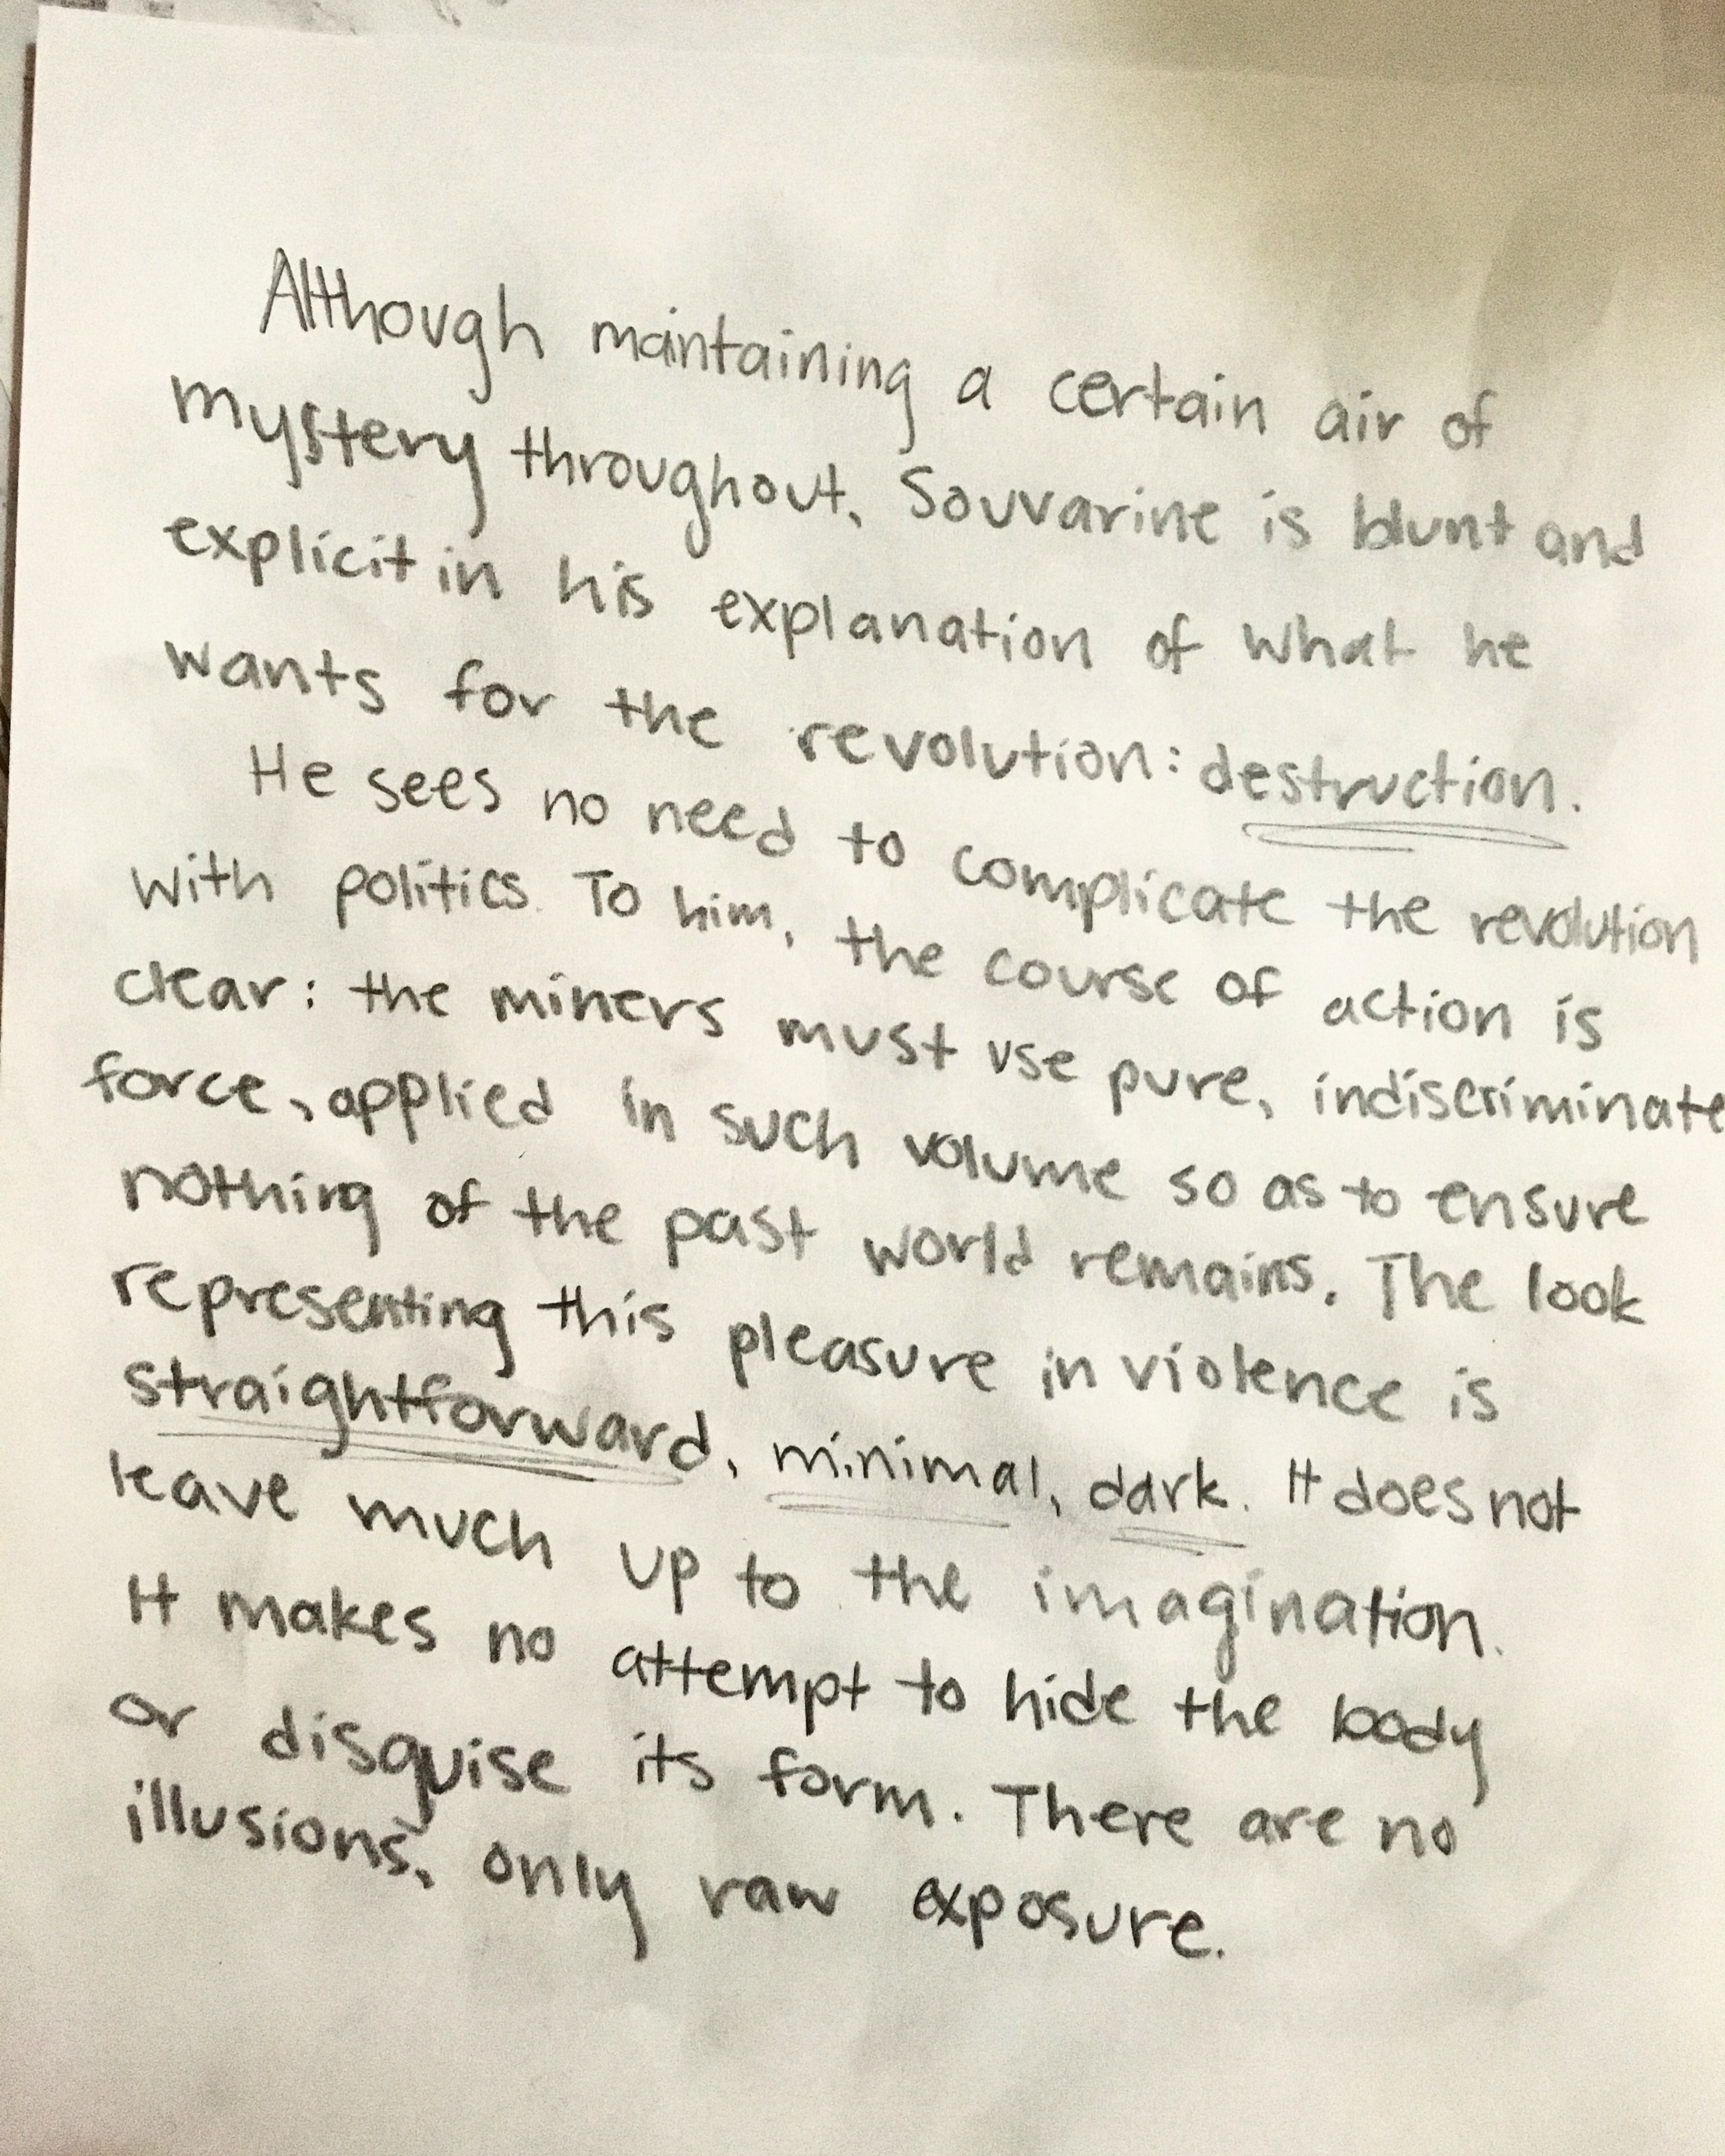 Although maintaining a certain air of
mystery throughout, Souvarine is blunt and
explicit in his explanation of what he
wants for the revolution: destruction.
He sees no need to complicate the revolution
with politics. To him, the course of action is
clear: the miners must use pure, indiscriminate
force, applied in such volume so as to ensure
nothing of the past world remains. The look
representing this pleasure in violence is
straightforward, minimal, dark. It does not
leave much up to the imagination.
It makes no attempt to hide the body
or disguise its form. There are no
illusions, only raw exposure.